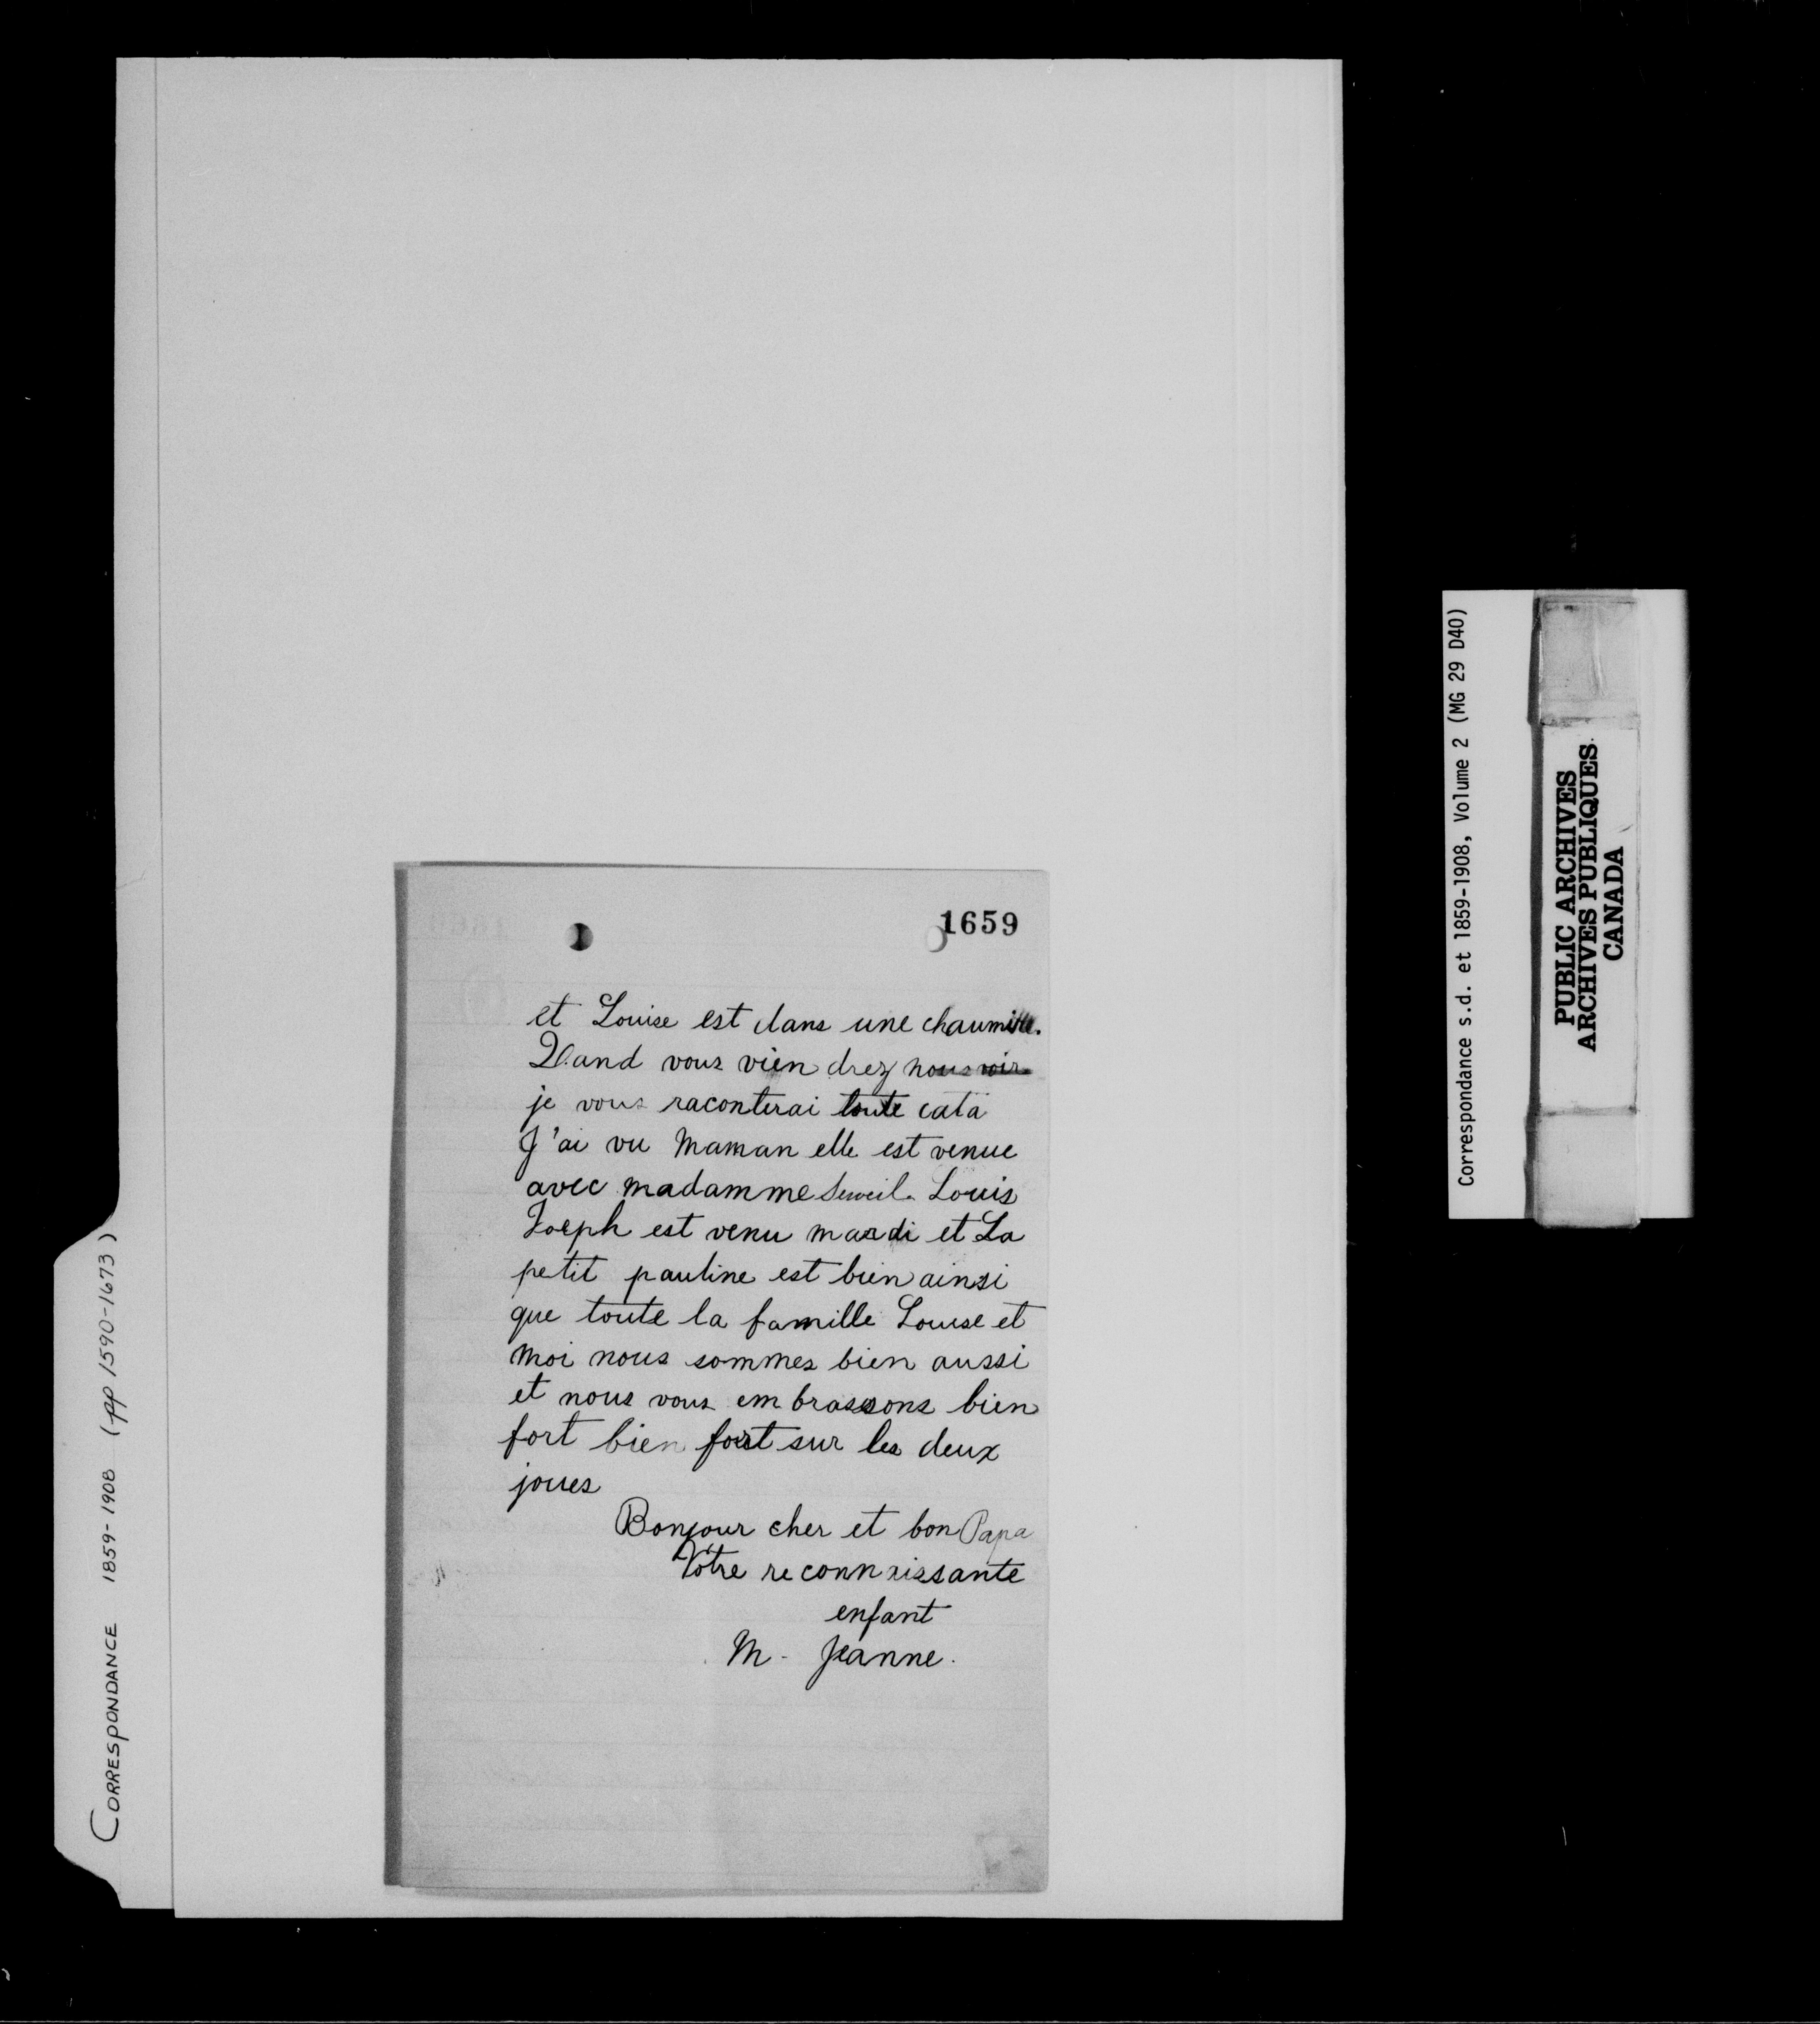 1659
et Louise est dans une chaumière.
Quand vous vien drez nous voir
je vous raconterai toute cala
J'ai vu Maman elle est venue
avec madamme Louis
Joeph est venu mardi et La
petit pauline est bien ainsi
que toute la famille Louise et
moi nous sommes bien aussi
et nous vous em brassons bien
fort bien fort sur les deux
joues
Bonjour cher et bon Papa
Vôtre reconnaissante
enfant
M. Jeanne.
CORRESPONDANCE 1859-1908 (pp 1590-1673)
Correspondance s.d. et 1859-1908, Volume 2 (MG 29 D40)
PUBLIC ARCHIVES
ARCHIVES PUBLIQUES
CANADA